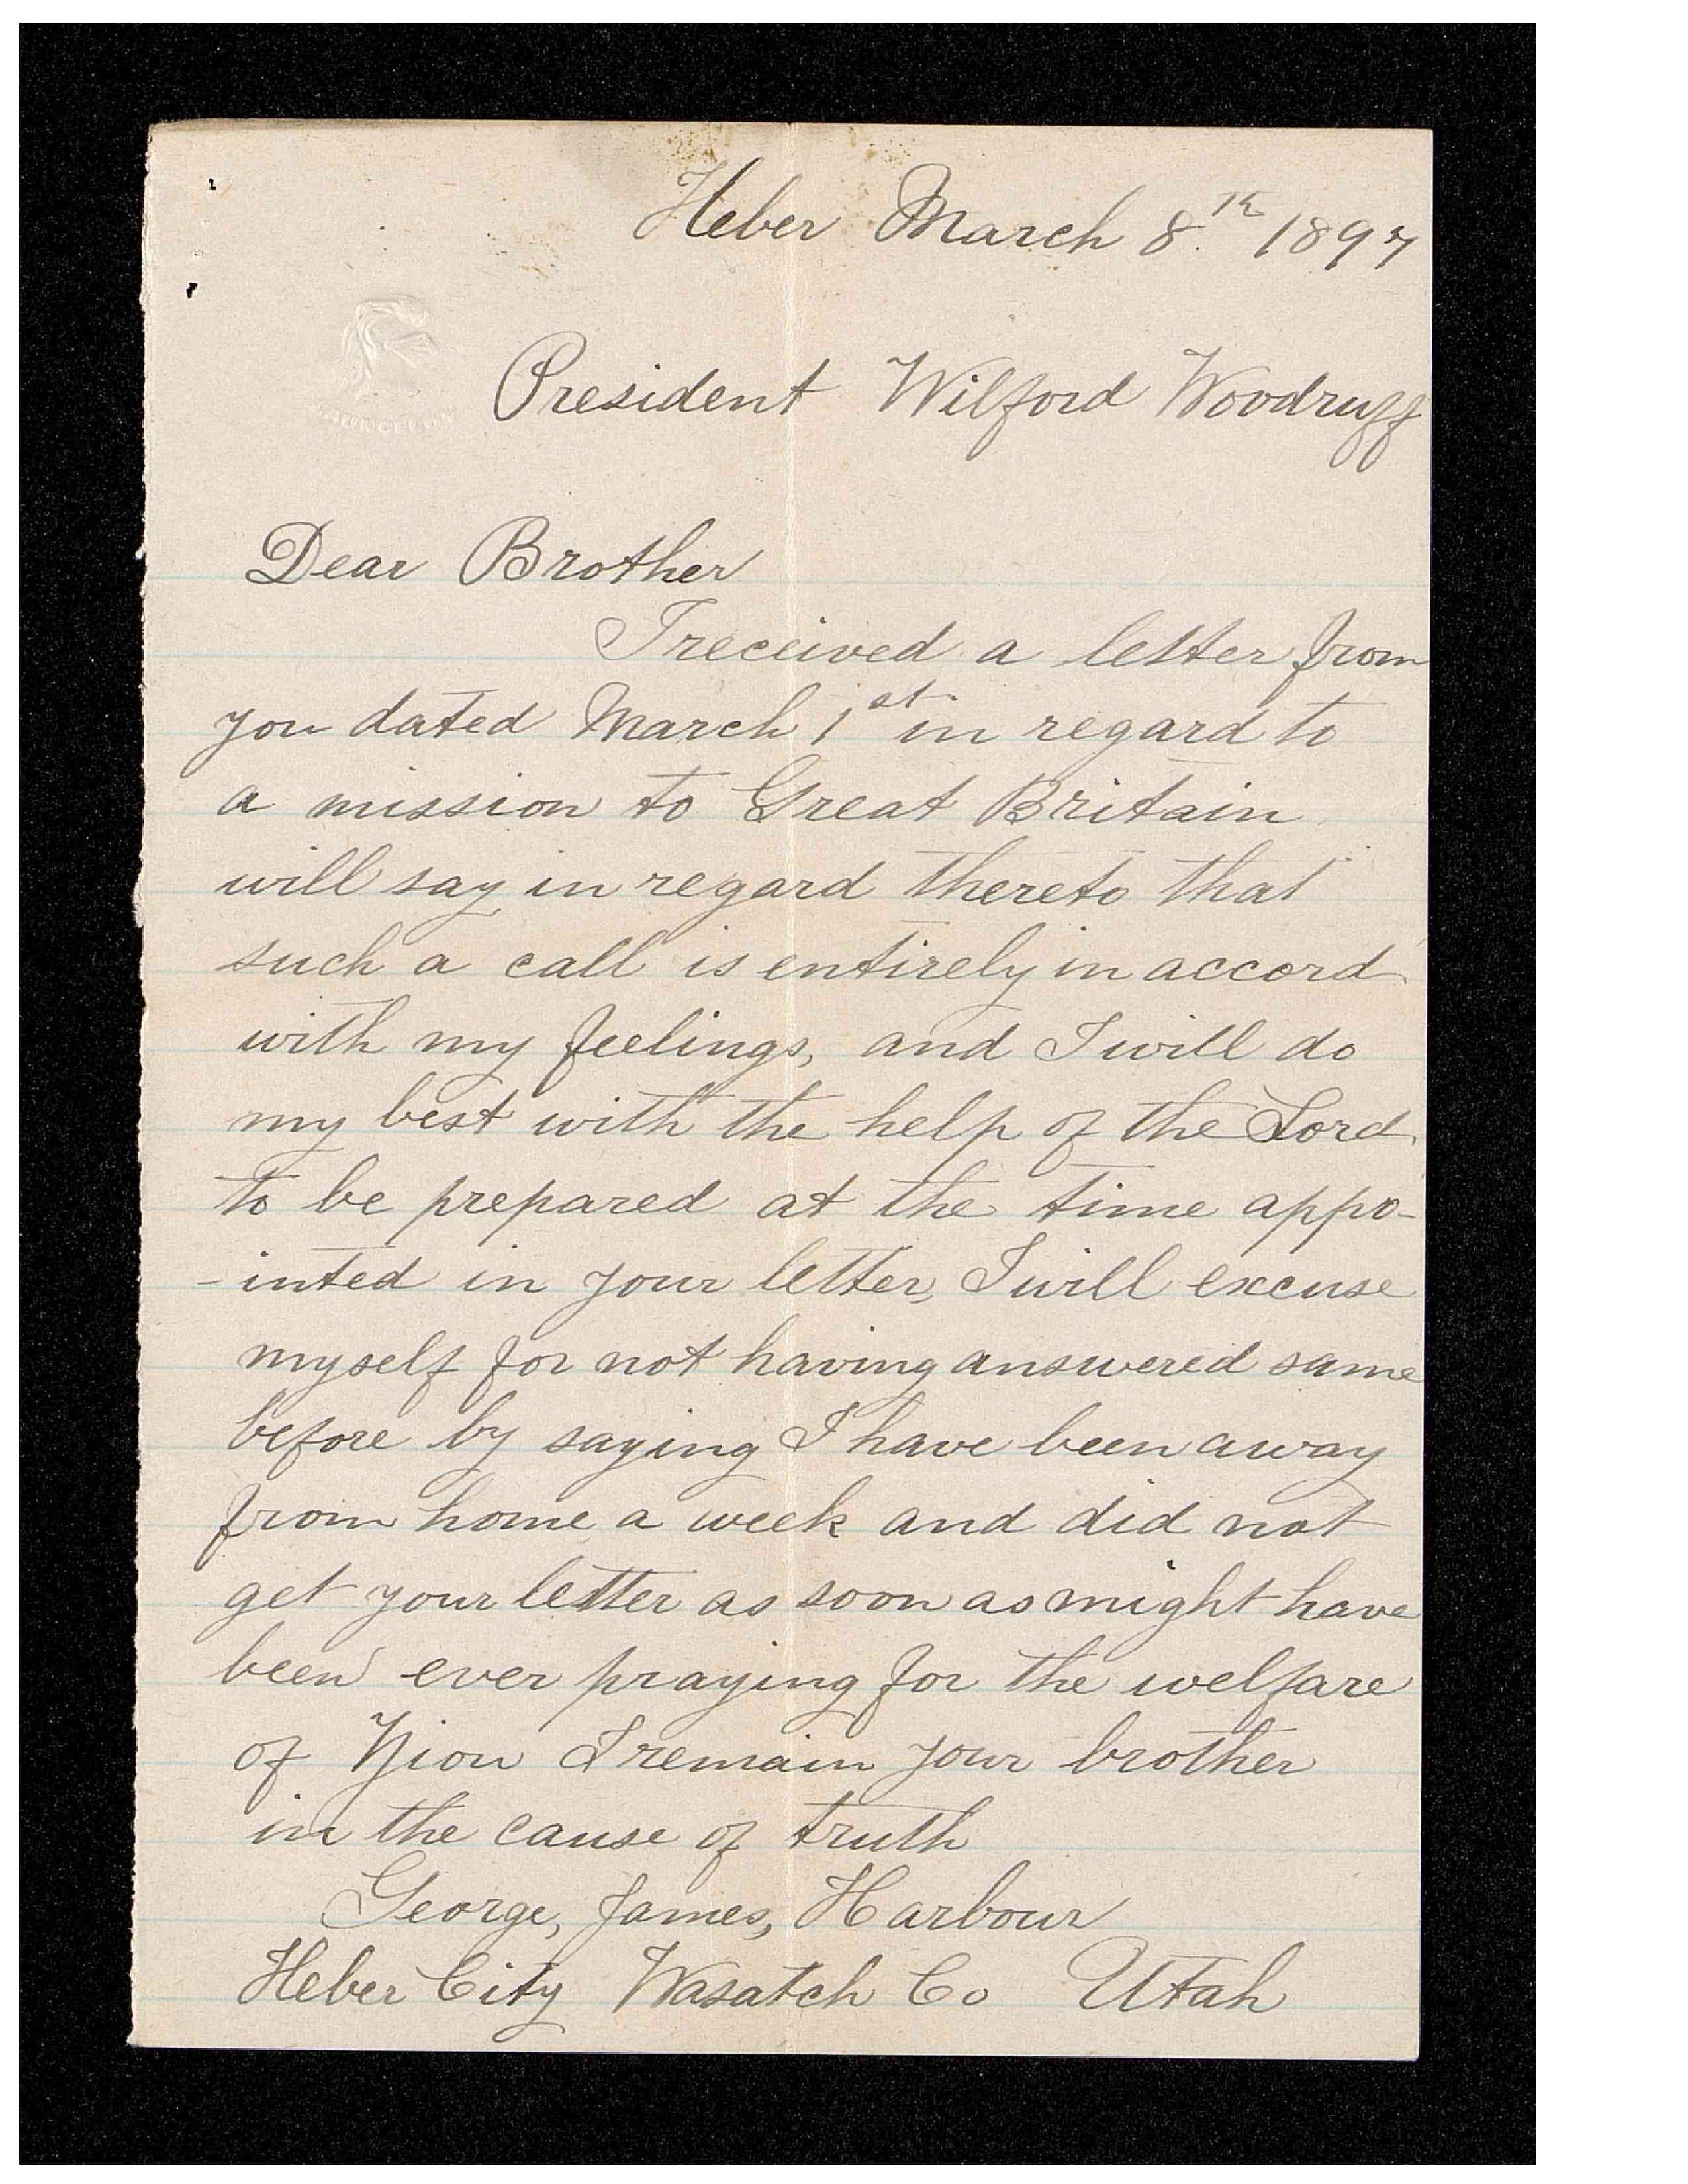 Heber March 8.th 1897
President Wilford Woodruff
Dear Brother
I received a letter from
you dated March 1st in regard to
a mission to Great Britain
will say in regard thereto that
such a call is entirely in accord
with my feelings, and I will do
my best with the help of the Lord
to be prepared at the time appo-
-inted in your letter, I will excuse
myself for not having answered same
before by saying I have been away
from home a week and did not
get your letter as soon as might have
been ever praying for the welfare
of Zion I remain your brother
in the cause of truth
George, James, Harbour
Heber City Wasatch Co Utah